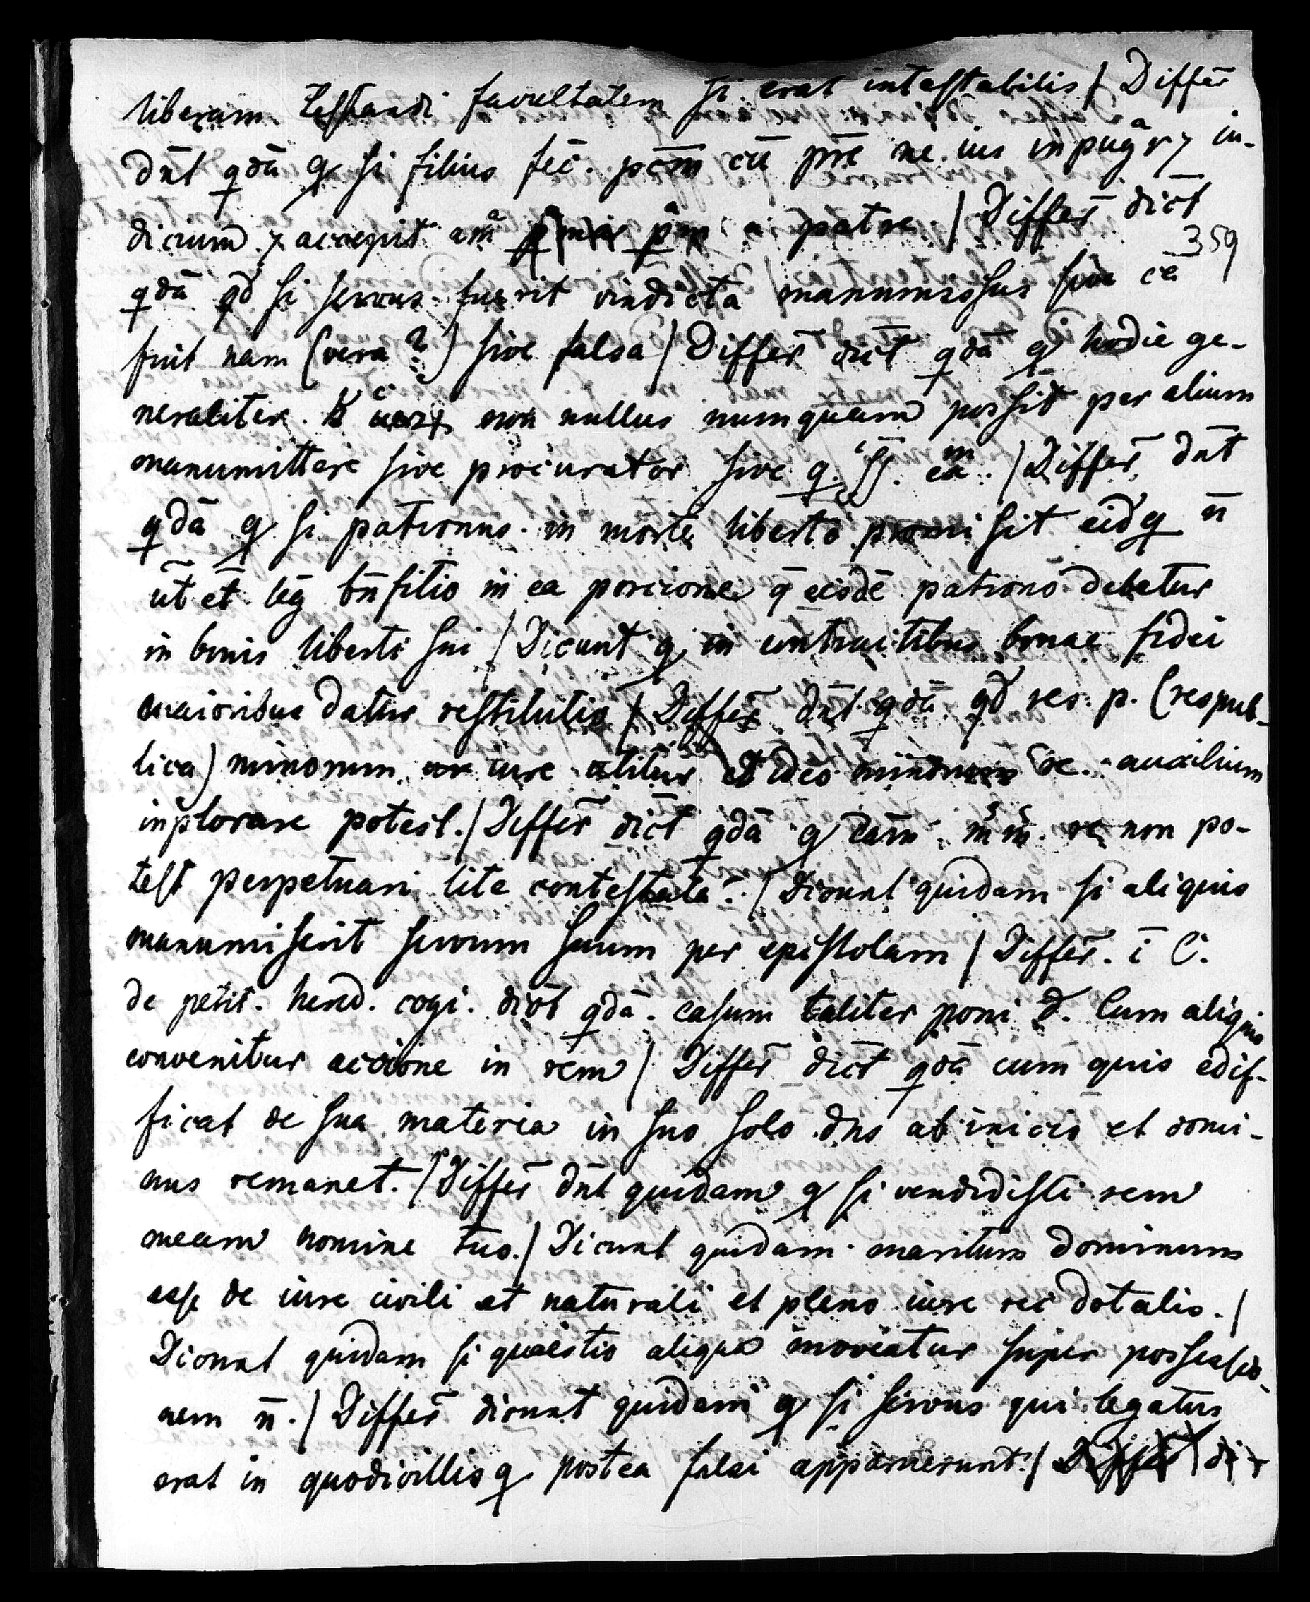 liberam testandi facultatem si erat intestabilis / Differ̄
dn̄t qdā q si filius fec̄. pcm̄ cū pr̄e ne ius inpugr̄ ⁊ in-
dicium ⁊ accepit am̄ a patre / Differ̄ dic̄t
359
qdā qd si servus fuerit vindicta manumissus sive ca
fuit nam (vera?) sive falsa / Differ̄ dic̄t qdā q hodie ge-
neraliter non nullus numquam possit per alium
manumittere sive procurator sive q. ss. eam / Differ̄ dn̄t
qdā q si patronus in morte liberto promisit eidq n̄
ut̄ et̄ leḡ bn̄fitio in ea porcione q̄ eisdē patronō debetur
in bonis liberti sui / Dicunt q in contractibus bonae fidei
maioribus datur restitutio / Differ̄ dn̄t qdā qd res p. (respub-
lica) minorum iure utitur et ideo auxilium
inplorare potest. / Differ̄ dic̄t qdā q non po-
test perpetuari lite contestata. / Dicunt quidam si aliquis
manumiserit servum suum per epistolam / Differ̄. ī C.
de petit. hered. cogi. dic̄t qdā. casum taliter poni d. Cum aliquis
convenitur accione in rem / Differ̄ dic̄t qdā cum quis edif-
ficat de sua materia in suo solo dns ab inicio et domi-
nus remanet. / Differ̄ dn̄t quidam q si vendidisti rem
meam nomine tuo. / Dicunt quidam maritum dominum
esse de iure civili et naturali et pleno iure rei dotalis. /
Dicunt quidam si quaestio aliqua moveatur super possessio-
nem n̄. / Differ̄ dicunt quidam q si servus qui legatus
erat in quodicillis q postea falsi apparuerunt /